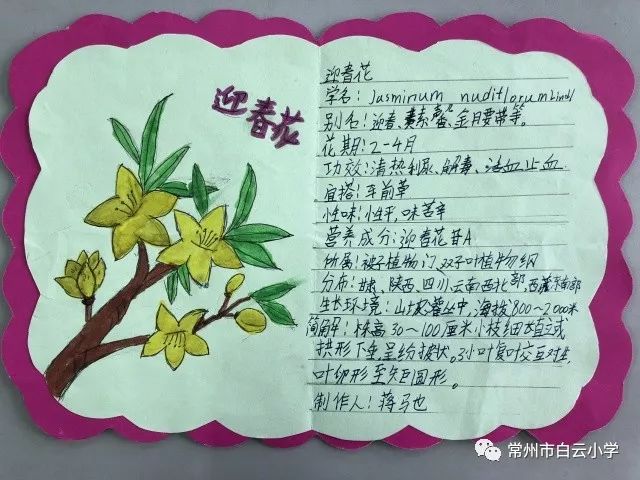 迎春花
迎春花
学名：Jasminum nudiflorum Lindl
别名：迎春、黄素馨、金腰带等。
花期：2-4月
功效：清热利尿、解毒、活血止血
宜搭：车前草
性味：性平，味苦辛
营养成分：迎春花苷A
所属：被子植物门，双子叶植物纲
分布：甘肃、陕西、四川、云南西北部、西藏东南部
生长环境：山坡灌丛中，海拔800~2000米
简介：株高30~100厘米。小枝细长直立或
拱形下垂，呈纷披状。3小叶复叶交互对生，
叶卵形至矩圆形。
制作人：蒋马也
常州市白云小学